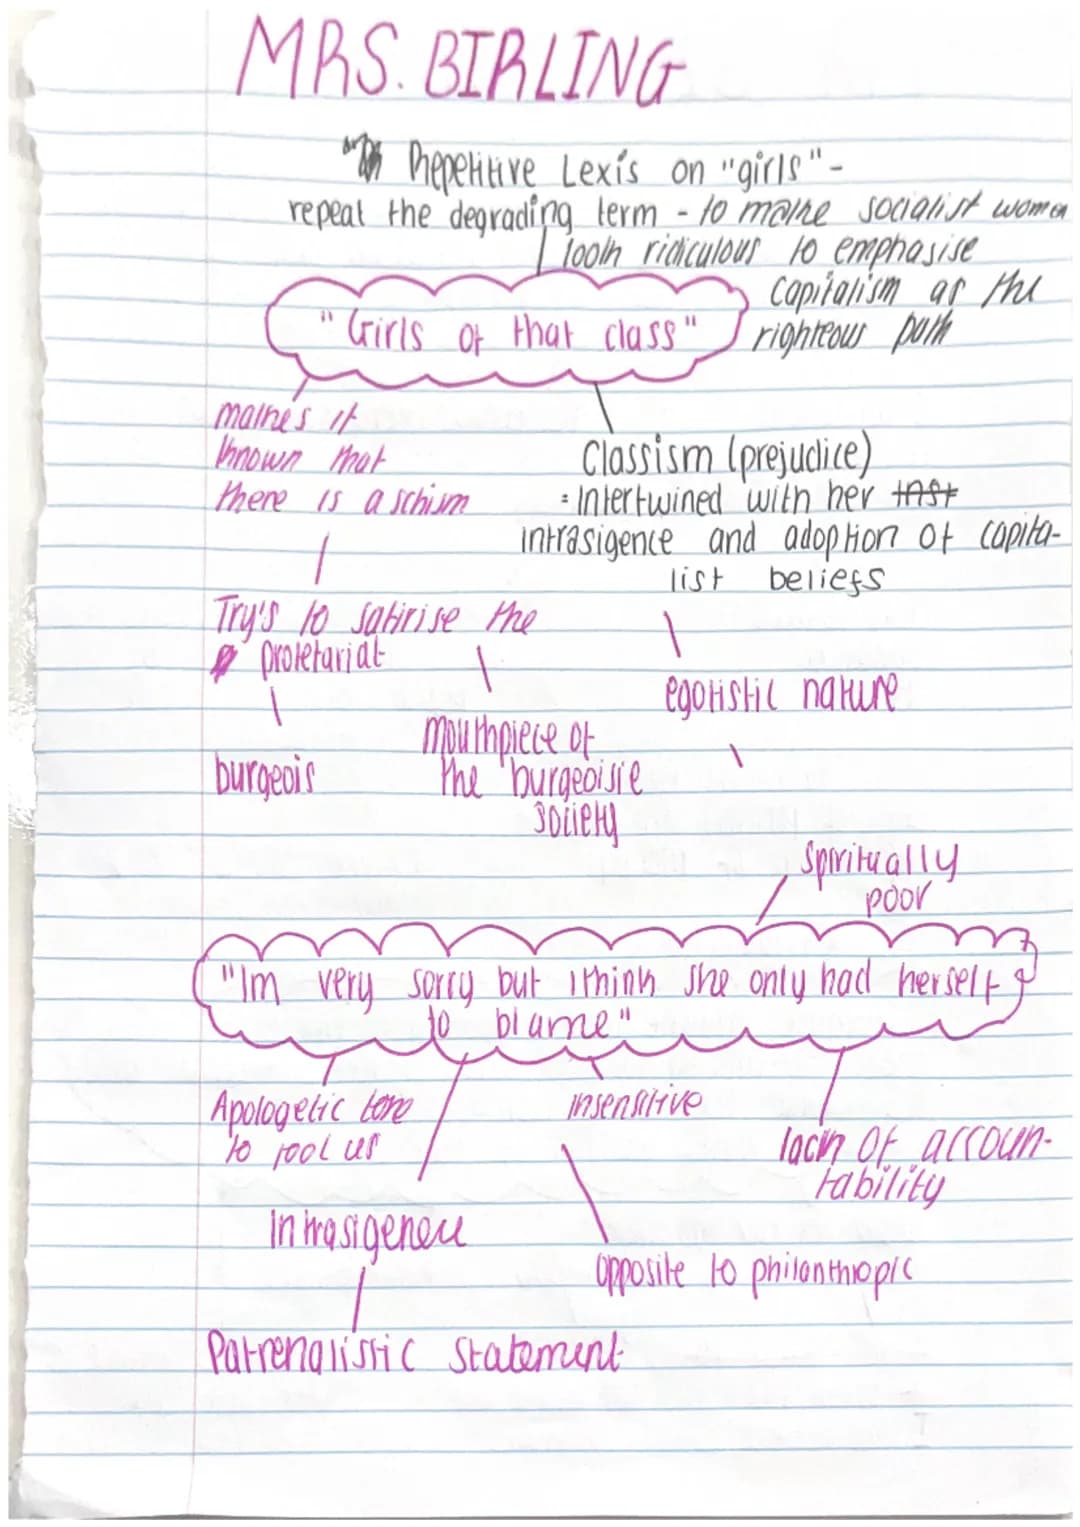 MRS. BIRLING
Repetitive Lexis on "girls" -
repeat the degrading term - to make socialist women
look ridiculous to emphasise
capitalism as the
righteous path
"Girls of that class"
makes it
known that
there is a schism
Classism (prejudice)
= Intertwined with her
intrasigence and adoption of capita-
list beliefs
Try's to satirise the
proletariat
egotistic nature
burgeois
mouthpiece of
the burgeoisie
society
Spiritually
poor
"Im very sorry but I think she only had herself
to blame"
Apologetic tone
to fool us
insensitive
lack of accoun-
tability
Intrasigence
opposite to philanthropic
Patrenalistic Statement